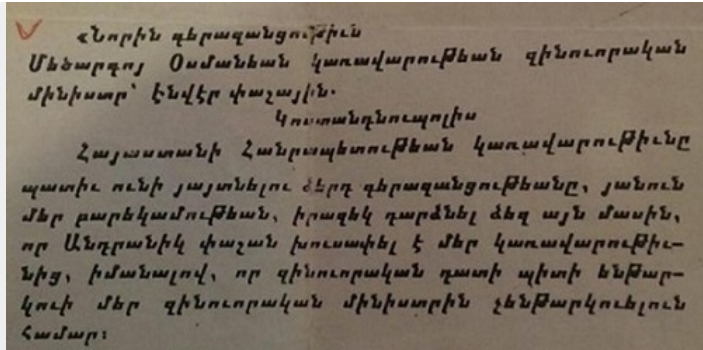 «Նորին գերազանցութիւն
Մեծարգոյ Օսմանեան կառավարութեան զինուորական
մինիստր՝ Էնվէր փաշային.
Կոստանդնուպոլիս
Հայաստանի Հանրապետութեան կառավարութիւնը
պատիւ ունի յայտնելու ձերդ գերազանցութեանը, յանուն
մեր բարեկամութեան, իրազեկ դարձնել ձեզ այն մասին,
որ Անդրանիկ փաշան խուսափել է մեր կառավարութիւ-
նից, իմանալով, որ զինուորական դատի պիտի ենթար-
կուի մեր զինուորական մինիստրին չենթարկուելուն
համար։